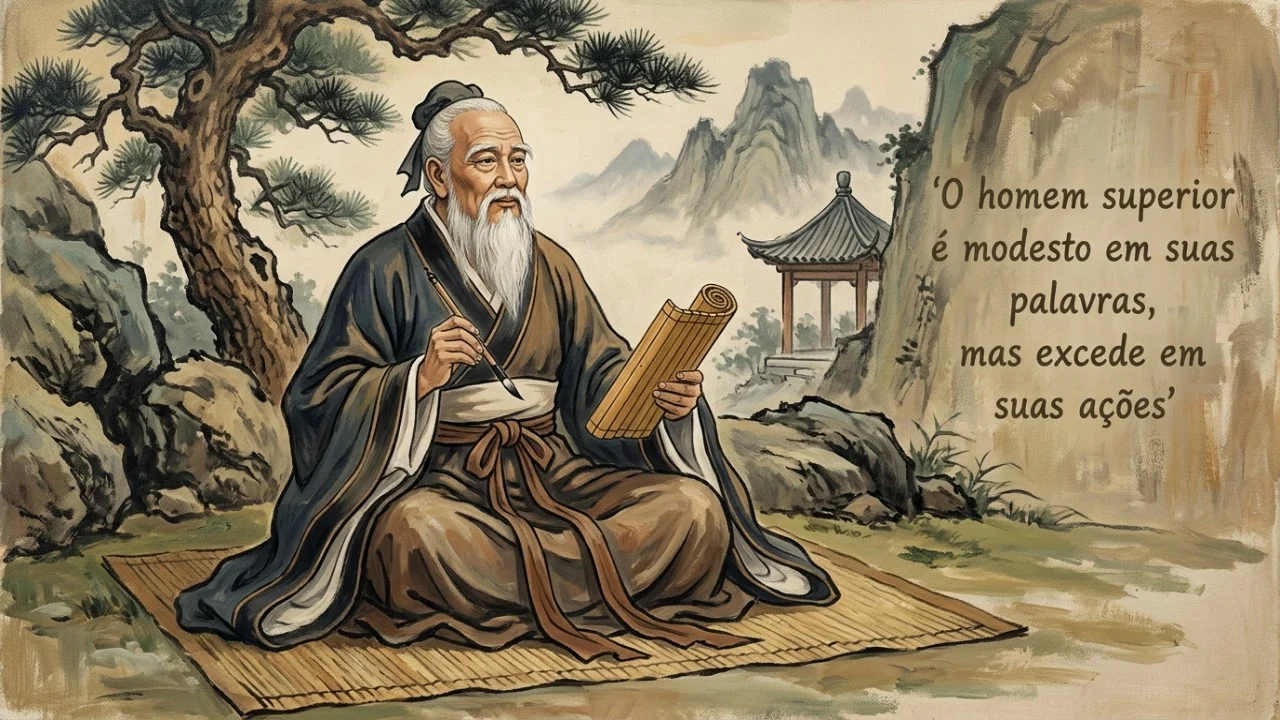 ‘O homem superior
é modesto em suas
palavras,
mas excede em
suas ações’